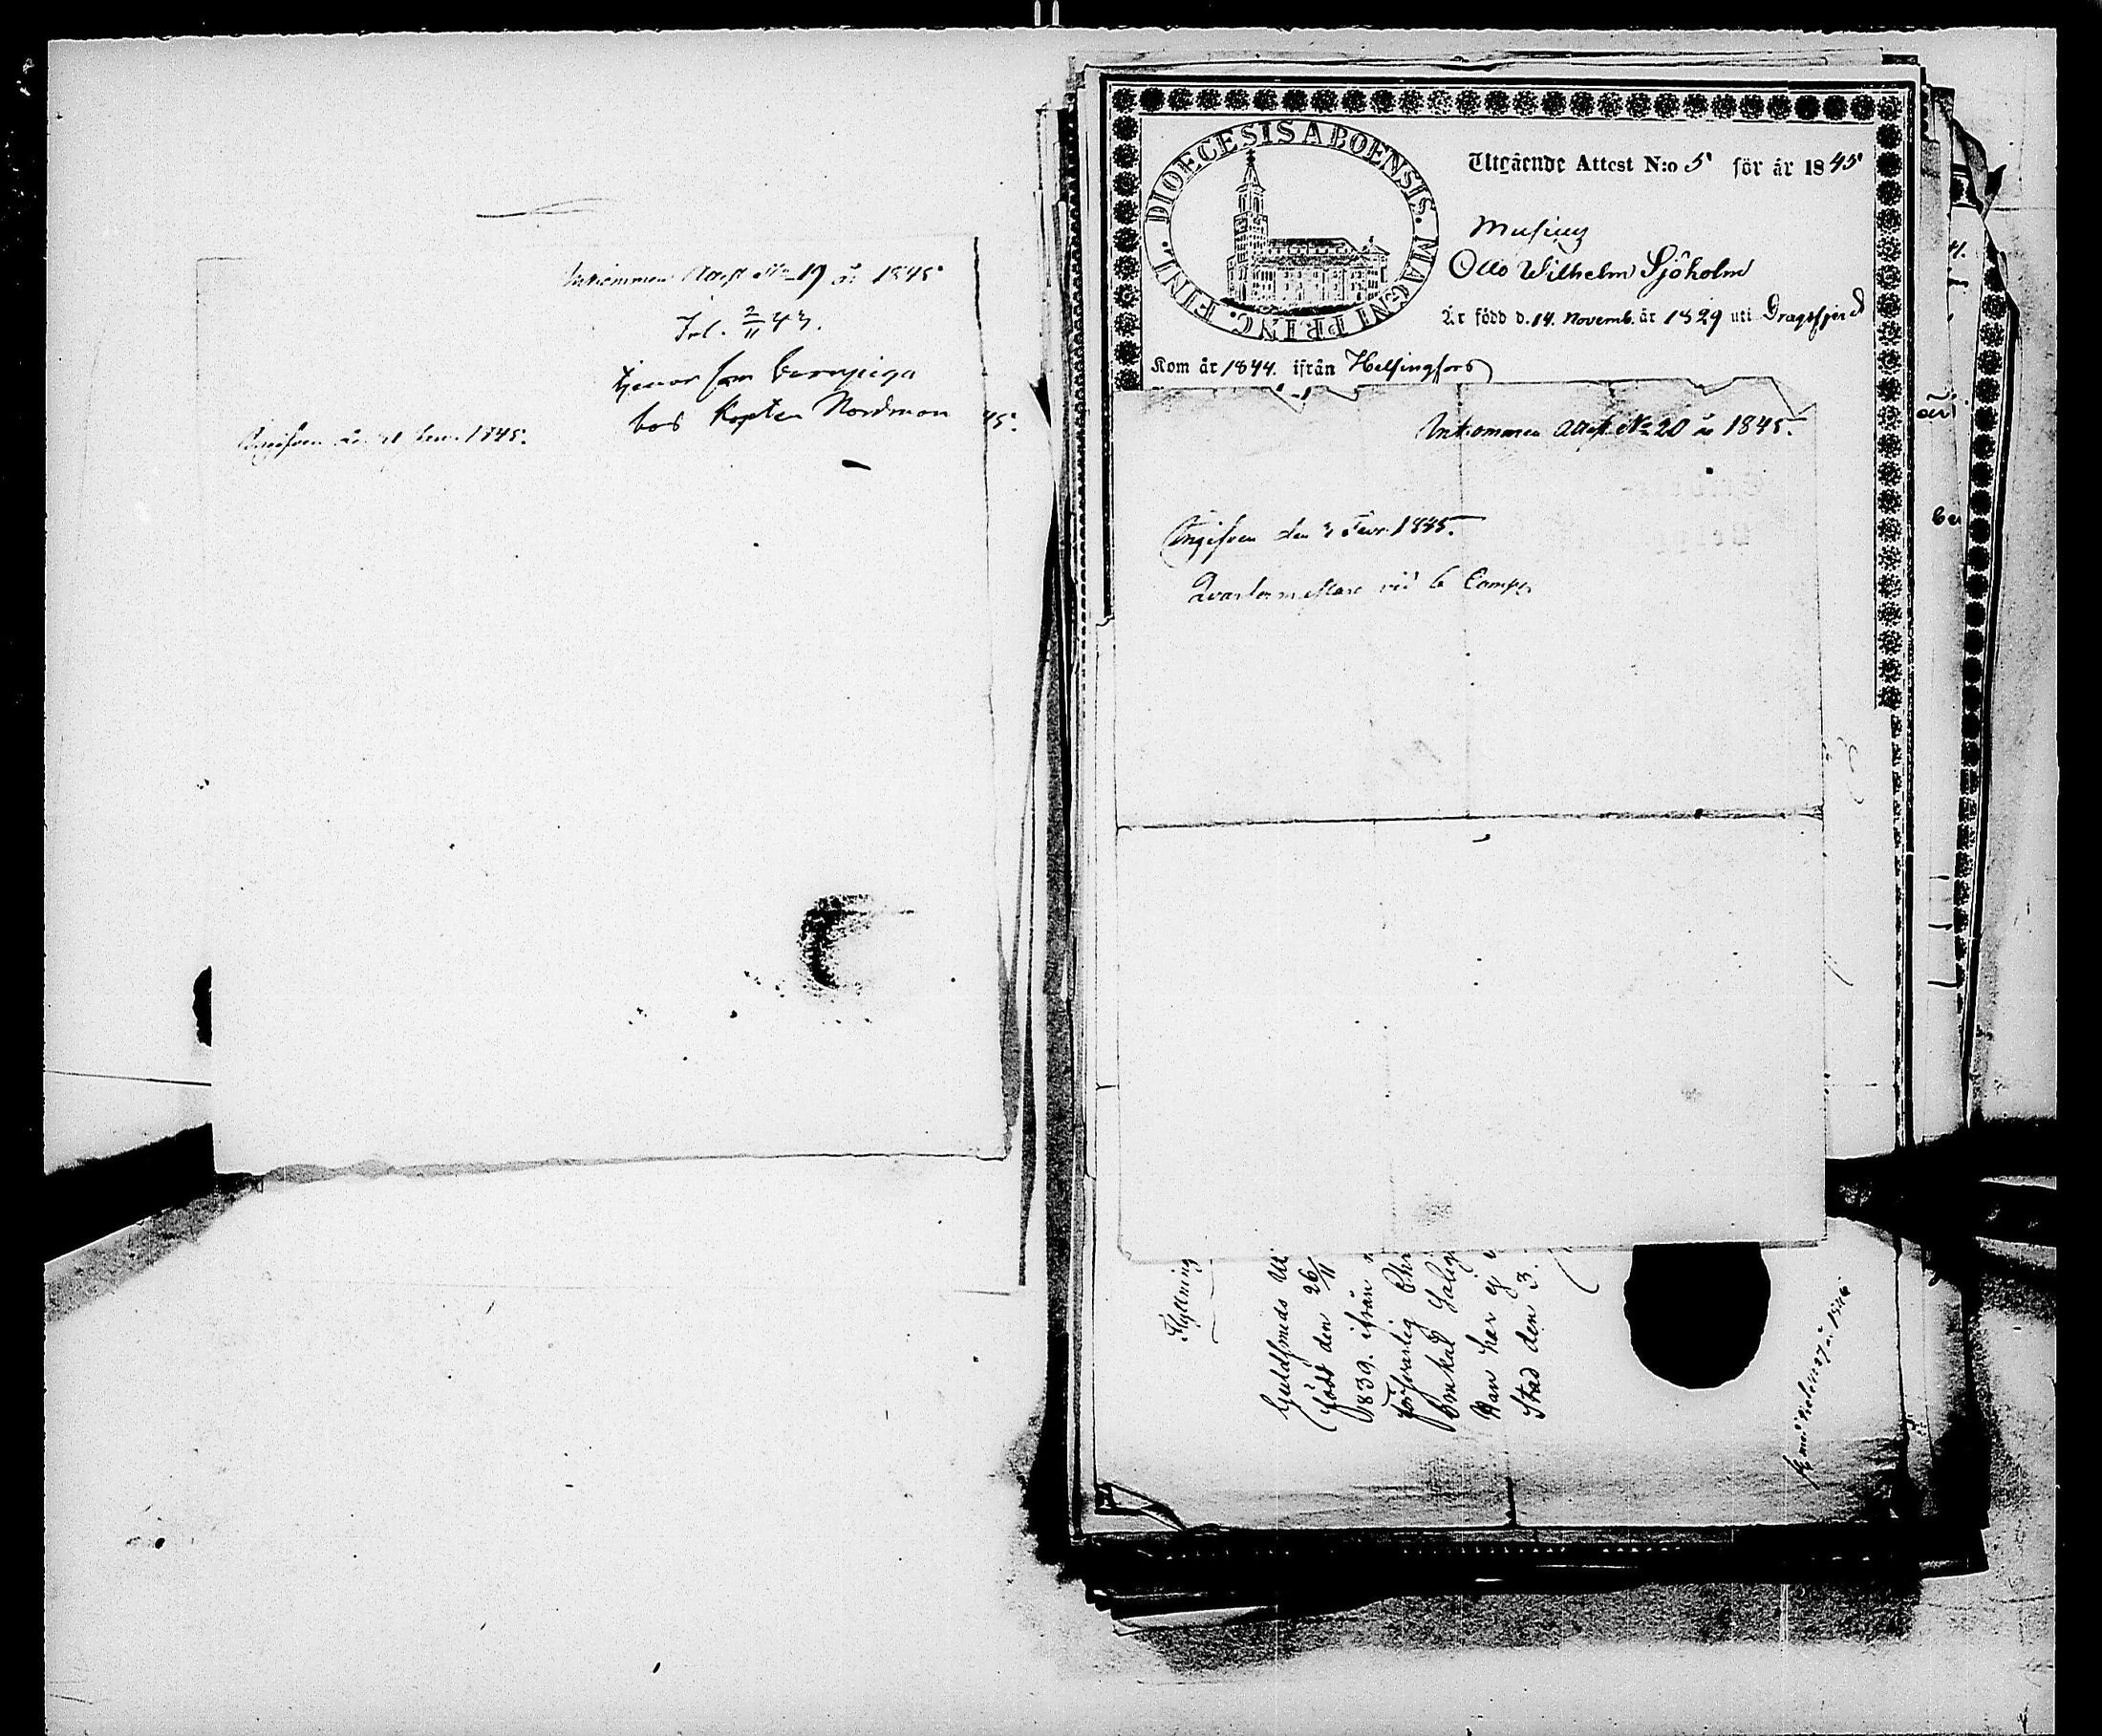 Inkommen Attest No 19 år 1845
Trl. 2/11 43.
tjenar som barnpiga
hos Kapten Nordman
1845.
45.
DIOECESIS ABOENSIS. MAGNI PRINC. FINL.
Utgående Attest N:o 5 för år 1845
Otto Wilhelm Sjöholm
Är född d. 14. Novemb. år 1829 uti Dragsfjerd
Kom år 1844. ifrån Helsingfors
Inkommen Attest No 20 år 1845.
Angifven den 3 Febr. 1845.
Qvartermästare vid 6 Comp.
år
Flyttning
Guldsmeds
född den 26/11
1839. ifrån
försvarlig Chr
Han har ej
Stad den 3.
1846